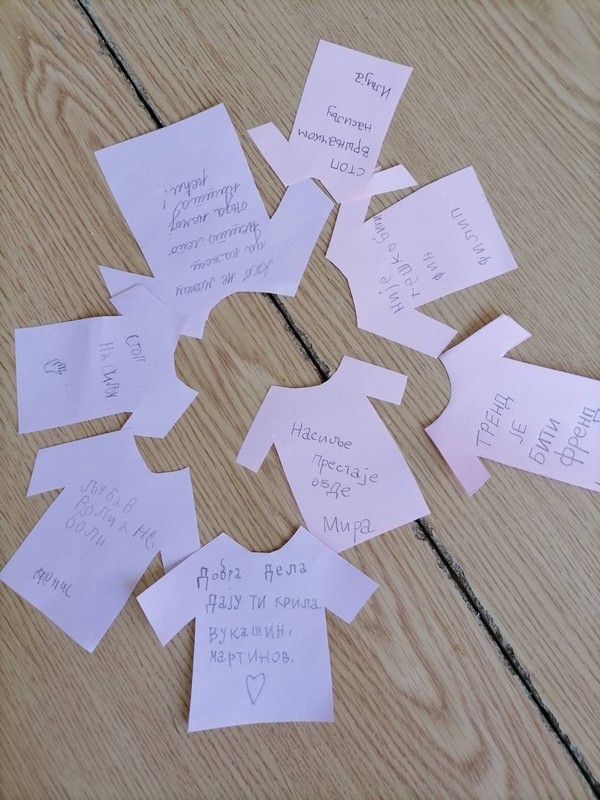 СТОП
ВРШЊАЧКОМ
насиљу
Илија
Ако не можеш
да кажеш
нешто лепо
онда немој
ништа
рећи!
није
тешко бити
фин
филип
ТРЕНД
ЈЕ
БИТИ
френд
СТОП
Насиљу
Насиље
престаје
овде
Мира
љубав
воли а не
боли
Денис
Добра дела
дају ти крила
вукашин,
мартинов.